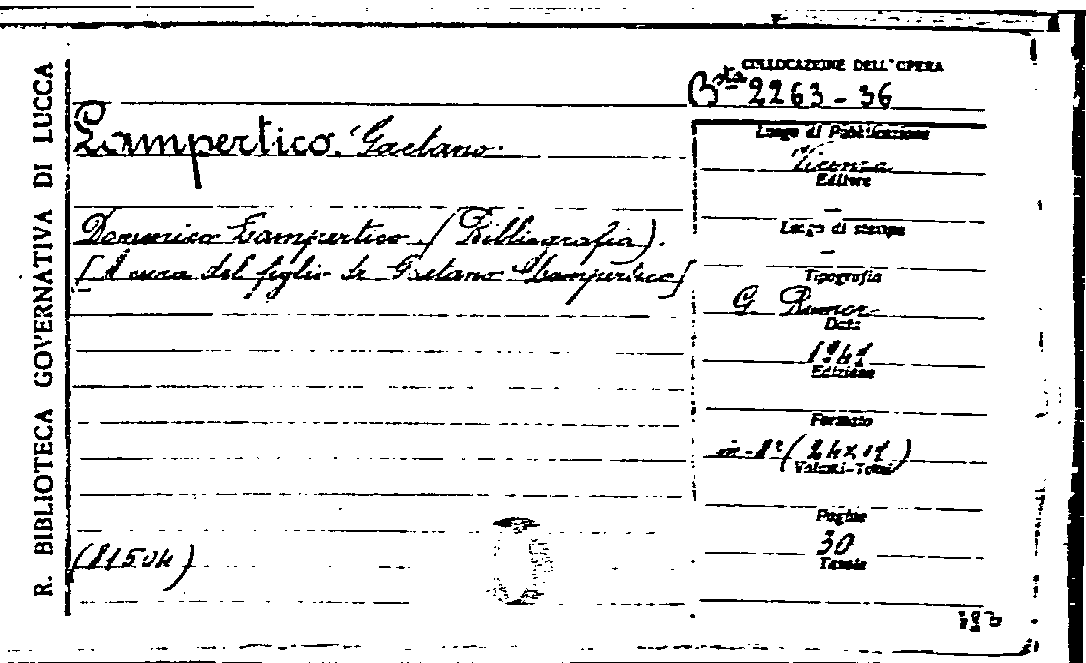 R. BIBLIOTECA GOVERNATIVA DI LUCCA
COLLOCAZIONE DELL'OPERA
Bta 2263-36
Lampertico Gaetano.
Luogo di Pubblicazione
Vicenza
Editore
—
Luogo di stampa
—
Tipografia
G. Rumor
Data
1941
Edizione
Domenico Lampertico (Bibliografia).
[A cura del figlio dr Gaetano Lampertico]
Formato
in-8º (24x17)
Volumi-Tomi
Pagine
30
Tavole
(81504)